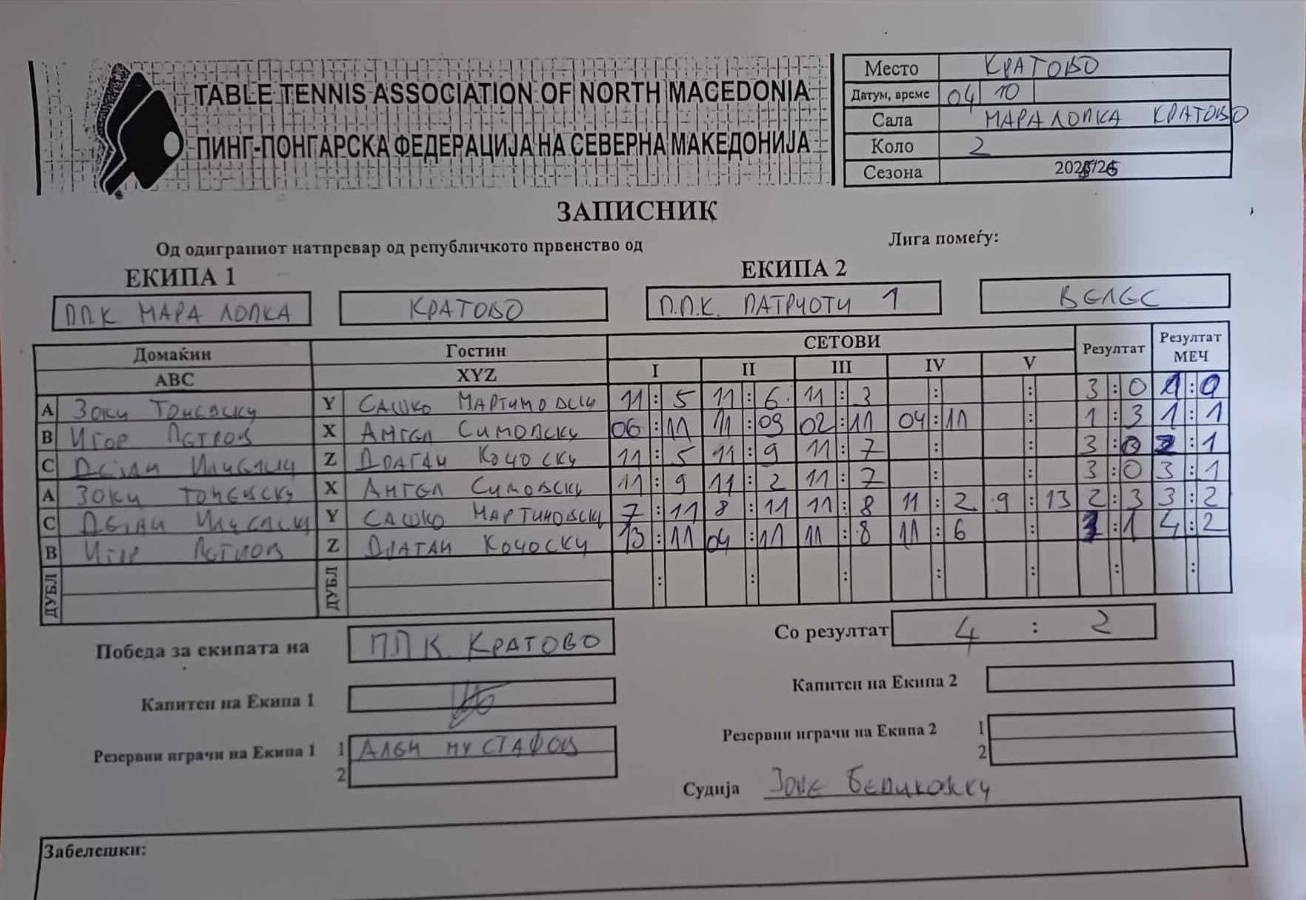 TABLE TENNIS ASSOCIATION OF NORTH MACEDONIA
ПИНГ-ПОНГАРСКА ФЕДЕРАЦИЈА НА СЕВЕРНА МАКЕДОНИЈА
Место КРАТОВО
Датум, време 04 10
Сала МАРА ЛОПКА КРАТОВО
Коло 2
Сезона 2025/26
ЗАПИСНИК
Од одиграниот натпревар од републичкото првенство од Лига помеѓу:
ЕКИПА 1 ЕКИПА 2
ППК МАРА ЛОПКА КРАТОВО П.П.К. ПАТРИОТИ 1 ВЕЛЕС
Домаќин Гостин СЕТОВИ Резултат Резултат МЕЧ
ABC XYZ I II III IV V
A Зоки Тоневски Y Сашко Мартиновски 11:5 11:6 11:3 : : 3:0 1:0
B Игор Петров X Ангел Симовски 06:11 11:09 02:11 04:11 : 1:3 1:1
C Дејан Z Драган Кочоски 11:5 11:9 11:7 : : 3:0 2:1
A Зоки Тоневски X Ангел Симовски 11:9 11:2 11:7 : : 3:0 3:1
C Дејан Y Сашко Мартиновски 7:11 8:11 11:8 11:2 9:13 2:3 3:2
B Игор Петров Z Драган Кочоски 13:11 04:11 11:8 11:6 : 3:1 4:2
ДУБЛ ДУБЛ : : : : : : :
Победа за екипата на П.П.К. КРАТОВО Со резултат 4 : 2
Капитен на Екипа 1 Капитен на Екипа 2
Резервни играчи на Екипа 1 1 АЛЕН МУСТАФОВ Резервни играчи на Екипа 2 1
2 2
Судија Јове
Забелешки: